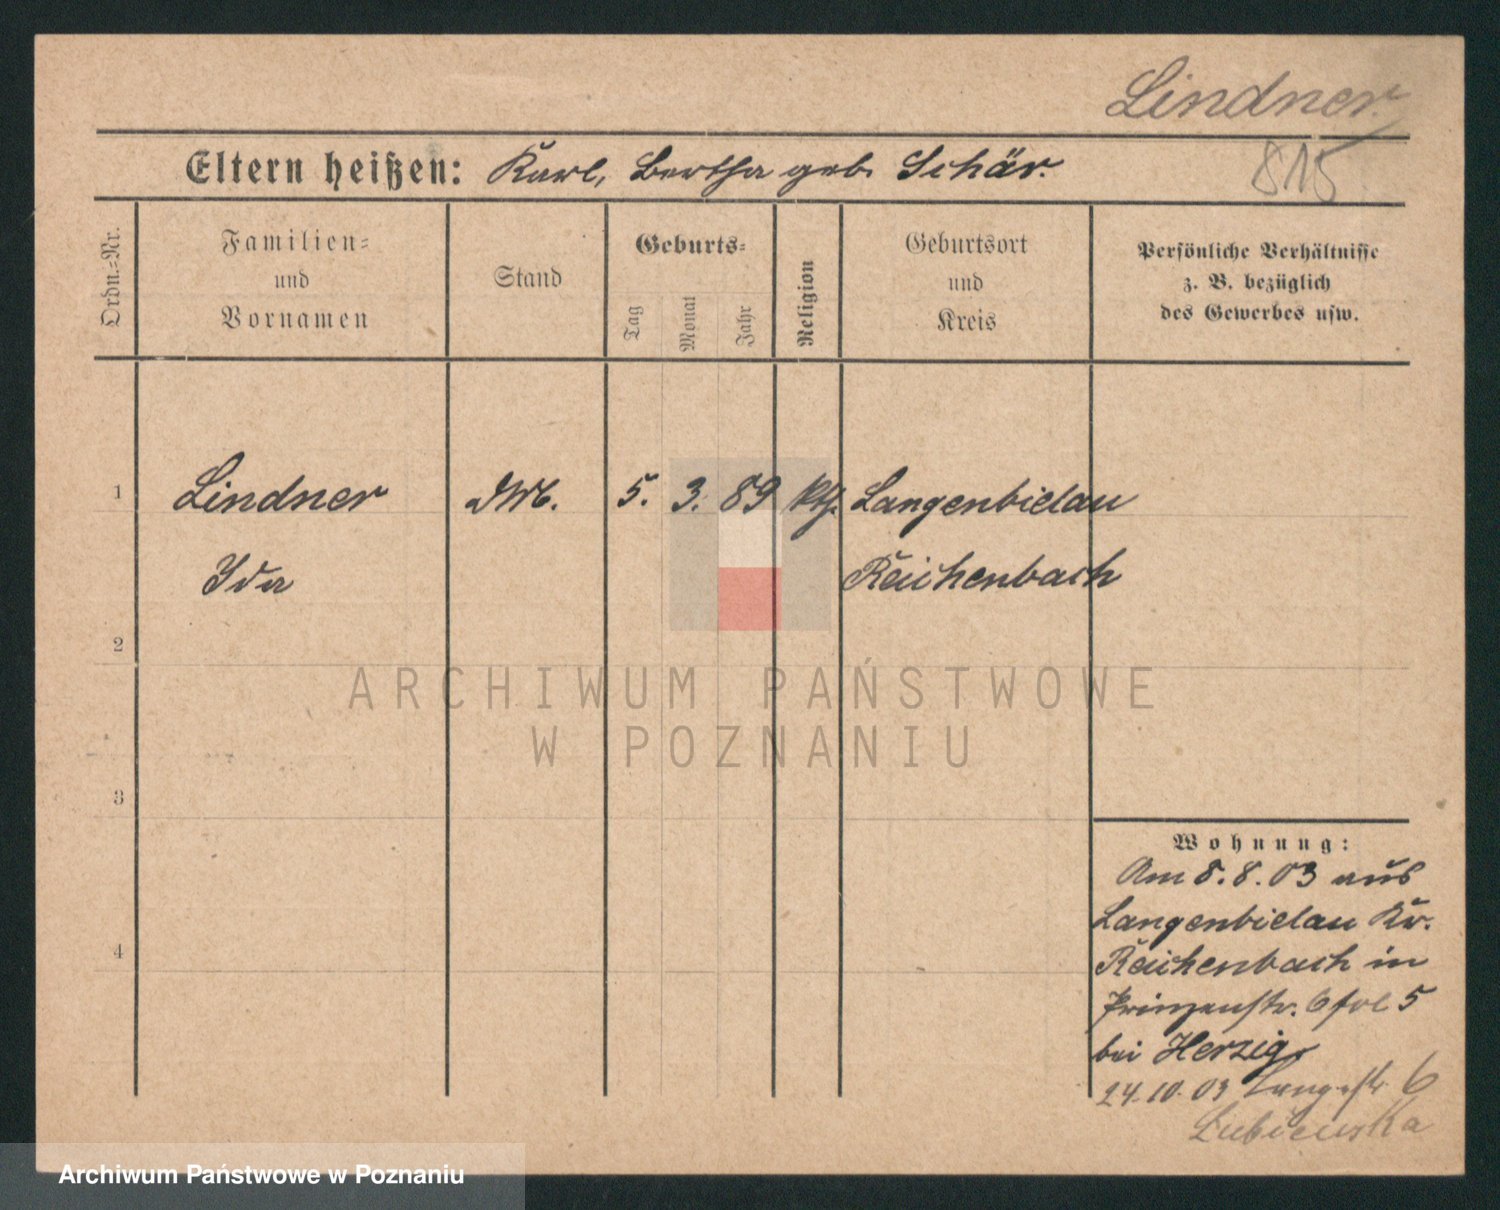 Lindner
815
Eltern heißen: Karl, Bertha geb. Schär.
Ordn.=Nr.
Familien=
und
Vornamen
Stand
Geburts=
Tag
Monat
Jahr
Religion
Geburtsort
und
Kreis
Persönliche Verhältnisse
z. B. bezüglich
des Gewerbes usw.
1 Lindner 5. 3. 89 kth. Langenbielau
Ida Reichenbach
2
ARCHIWUM PAŃSTWOWE
W POZNANIU
3
Wohnung:
Am 8.8.03 aus
Langenbielau Kr.
4
Reichenbach in
Prinzenstr. 6 bei
Herzig
24.10.03 Langestr. 6
Lubiewska
Archiwum Państwowe w Poznaniu